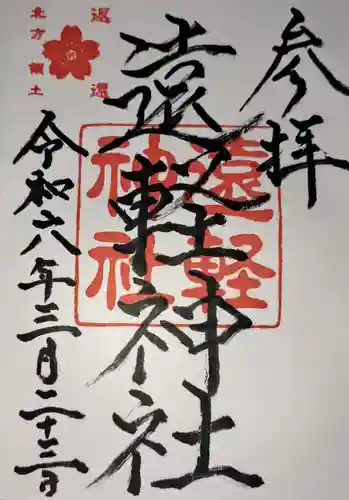 参拝
遠軽神社
遠軽
神社
令和六年三月二十三日
返還
北方領土